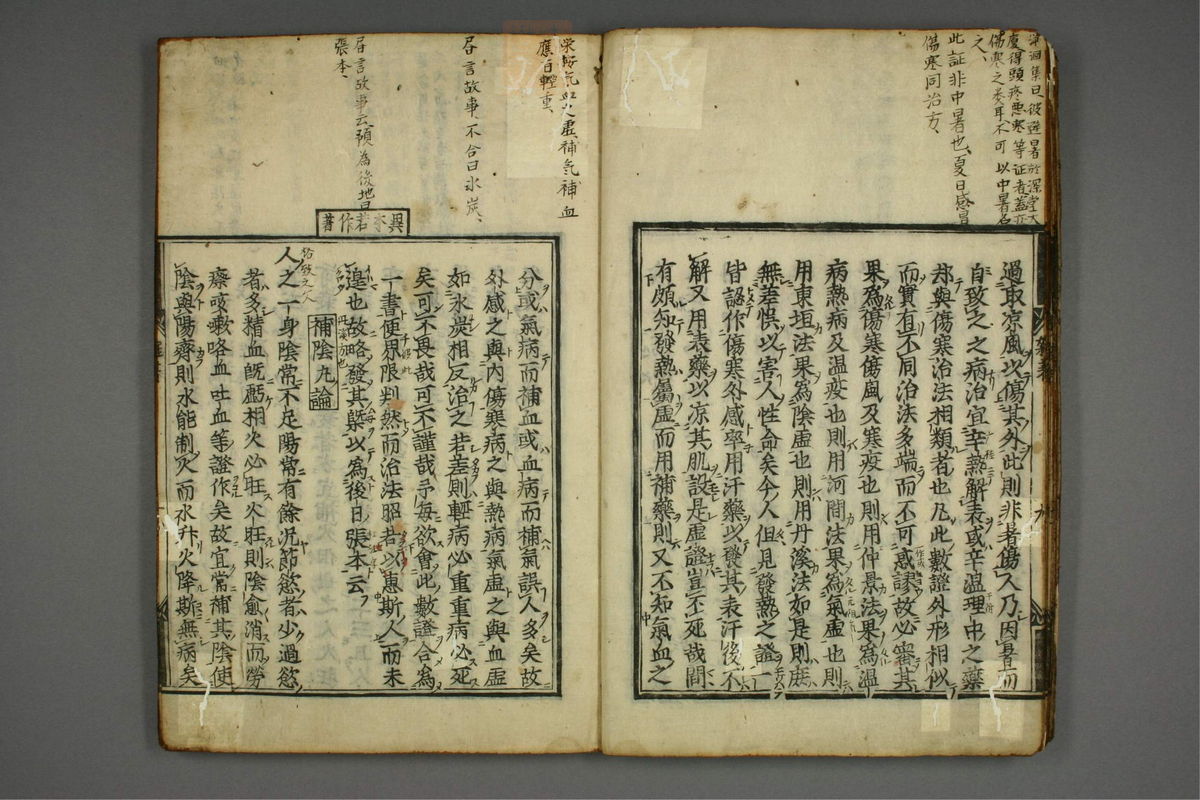 溯洄集曰彼避暑於深堂大
廈得頭疼惡寒等证者蓋亦
傷寒之类耳不可以中暑名
之
此証非中暑也夏日感冒
傷寒同治方
過取凉風以傷其外此則非暑傷人乃因暑而
自致之之病治宜辛熱解表或辛温理中之藥
却與傷寒治法相類者也凡此數證外形相似
而實有不同治法多端而不可惑謬故必審其
果為傷寒傷風及寒疫也則用仲景法果為温
病熱病及温疫也則用河間法果為氣虚也則
用東垣法果為陰虚也則用丹溪法如是則庶
無差悞以害人性命矣今人但見發熱之證一
皆認作傷寒外感率用汗藥以發其表汗後不
解又用表藥以凉其肌設是虚證豈不死哉間
有頗知發熱屬虚而用補藥則又不知氣血之
應自輕重
居言故事不合曰水炭
居言故事云預為後地曰
張本
分或氣病而補血或血病而補氣誤人多矣故
外感之與内傷寒病之與熱病氣虚之與血虚
如氷炭相反治之若差則輕病必重重病必死
矣可不畏哉可不謹哉予每欲會此數證合為
一書使界限判然而治法昭若以惠斯人而未
遑也故略發其槩以為後日張本云
異本若作著
補陰丸論
人之一身陰常不足陽常有餘况節慾者少過慾
者多精血既虧相火必旺火旺則陰愈消而勞
瘵咳嗽咯血吐血等證作矣故宜常補其陰使
陰與陽齊則水能制火而水升火降斯無病矣